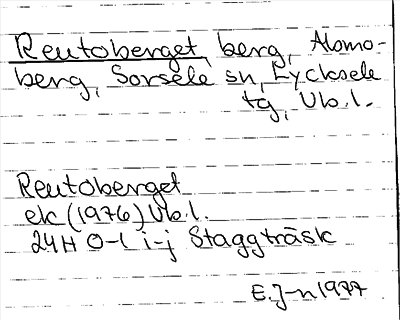 Reutoberget, berg, Alsmo-
berg, Sorsele sn, Lycksele
tg, Vb.l.
Reutoberget
ek (1976) Vb.l.
24H 0-1 i-j Staggträsk
E.J-n 1977